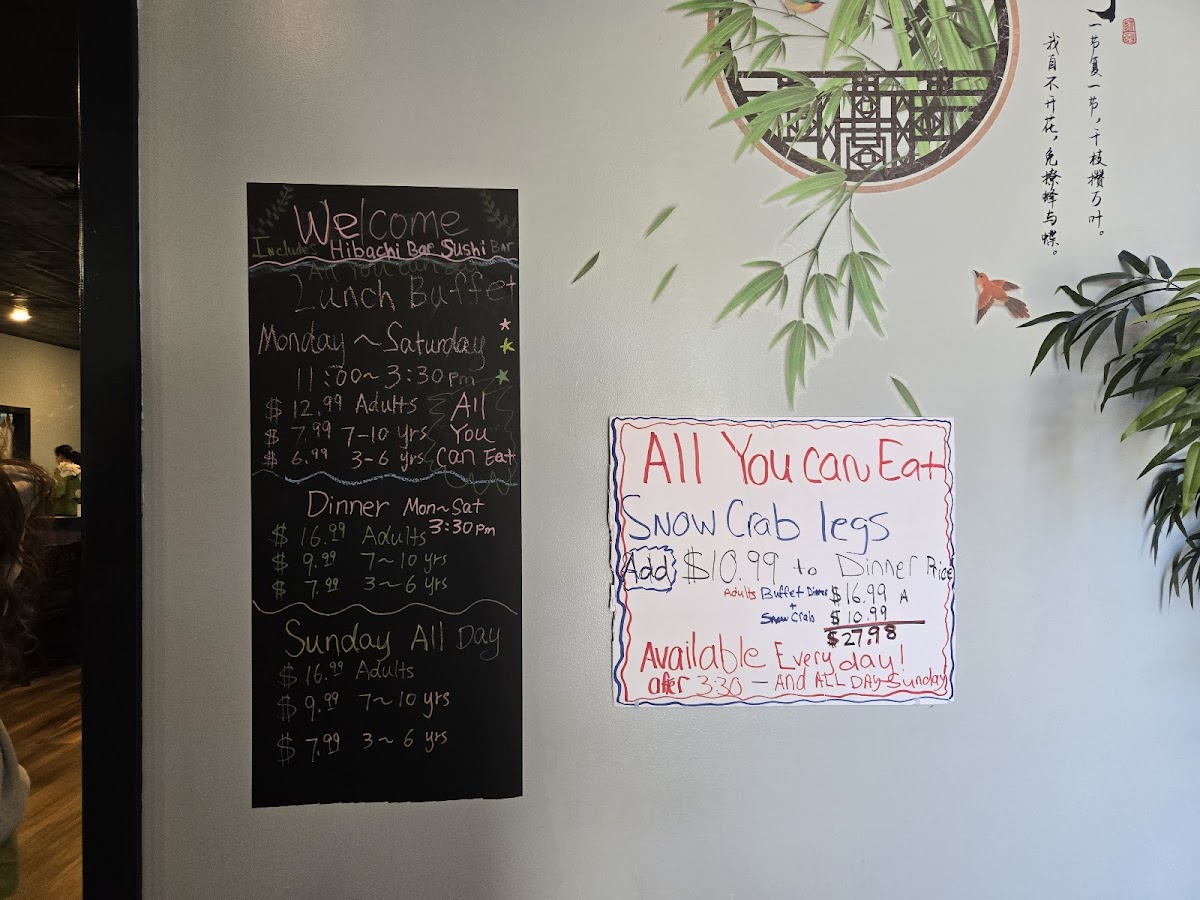 Welcome
Includes Hibachi Bar Sushi BAR
All You can Eat
Lunch Buffet
Monday ~ Saturday
11:00 ~ 3:30 pm
$ 12.99 Adults
$ 7.99 7-10 yrs
$ 6.99 3-6 yrs
All
You
can Eat
Dinner Mon~Sat
3:30 pm
$ 16.99 Adults
$ 9.99 7~10 yrs
$ 7.99 3~6 yrs
Sunday All Day
$ 16.99 Adults
$ 9.99 7~10 yrs
$ 7.99 3~6 yrs
All You Can Eat
Snow Crab legs
Add $10.99 to Dinner Price
Adults Buffet Dinner $16.99 A
+
Snow Crab $10.99
$27.98
Available Everyday!
after 3:30 — And ALL DAY Sunday
一节复一节，千枝攒万叶。
我自不开花，免撩蜂与蝶。